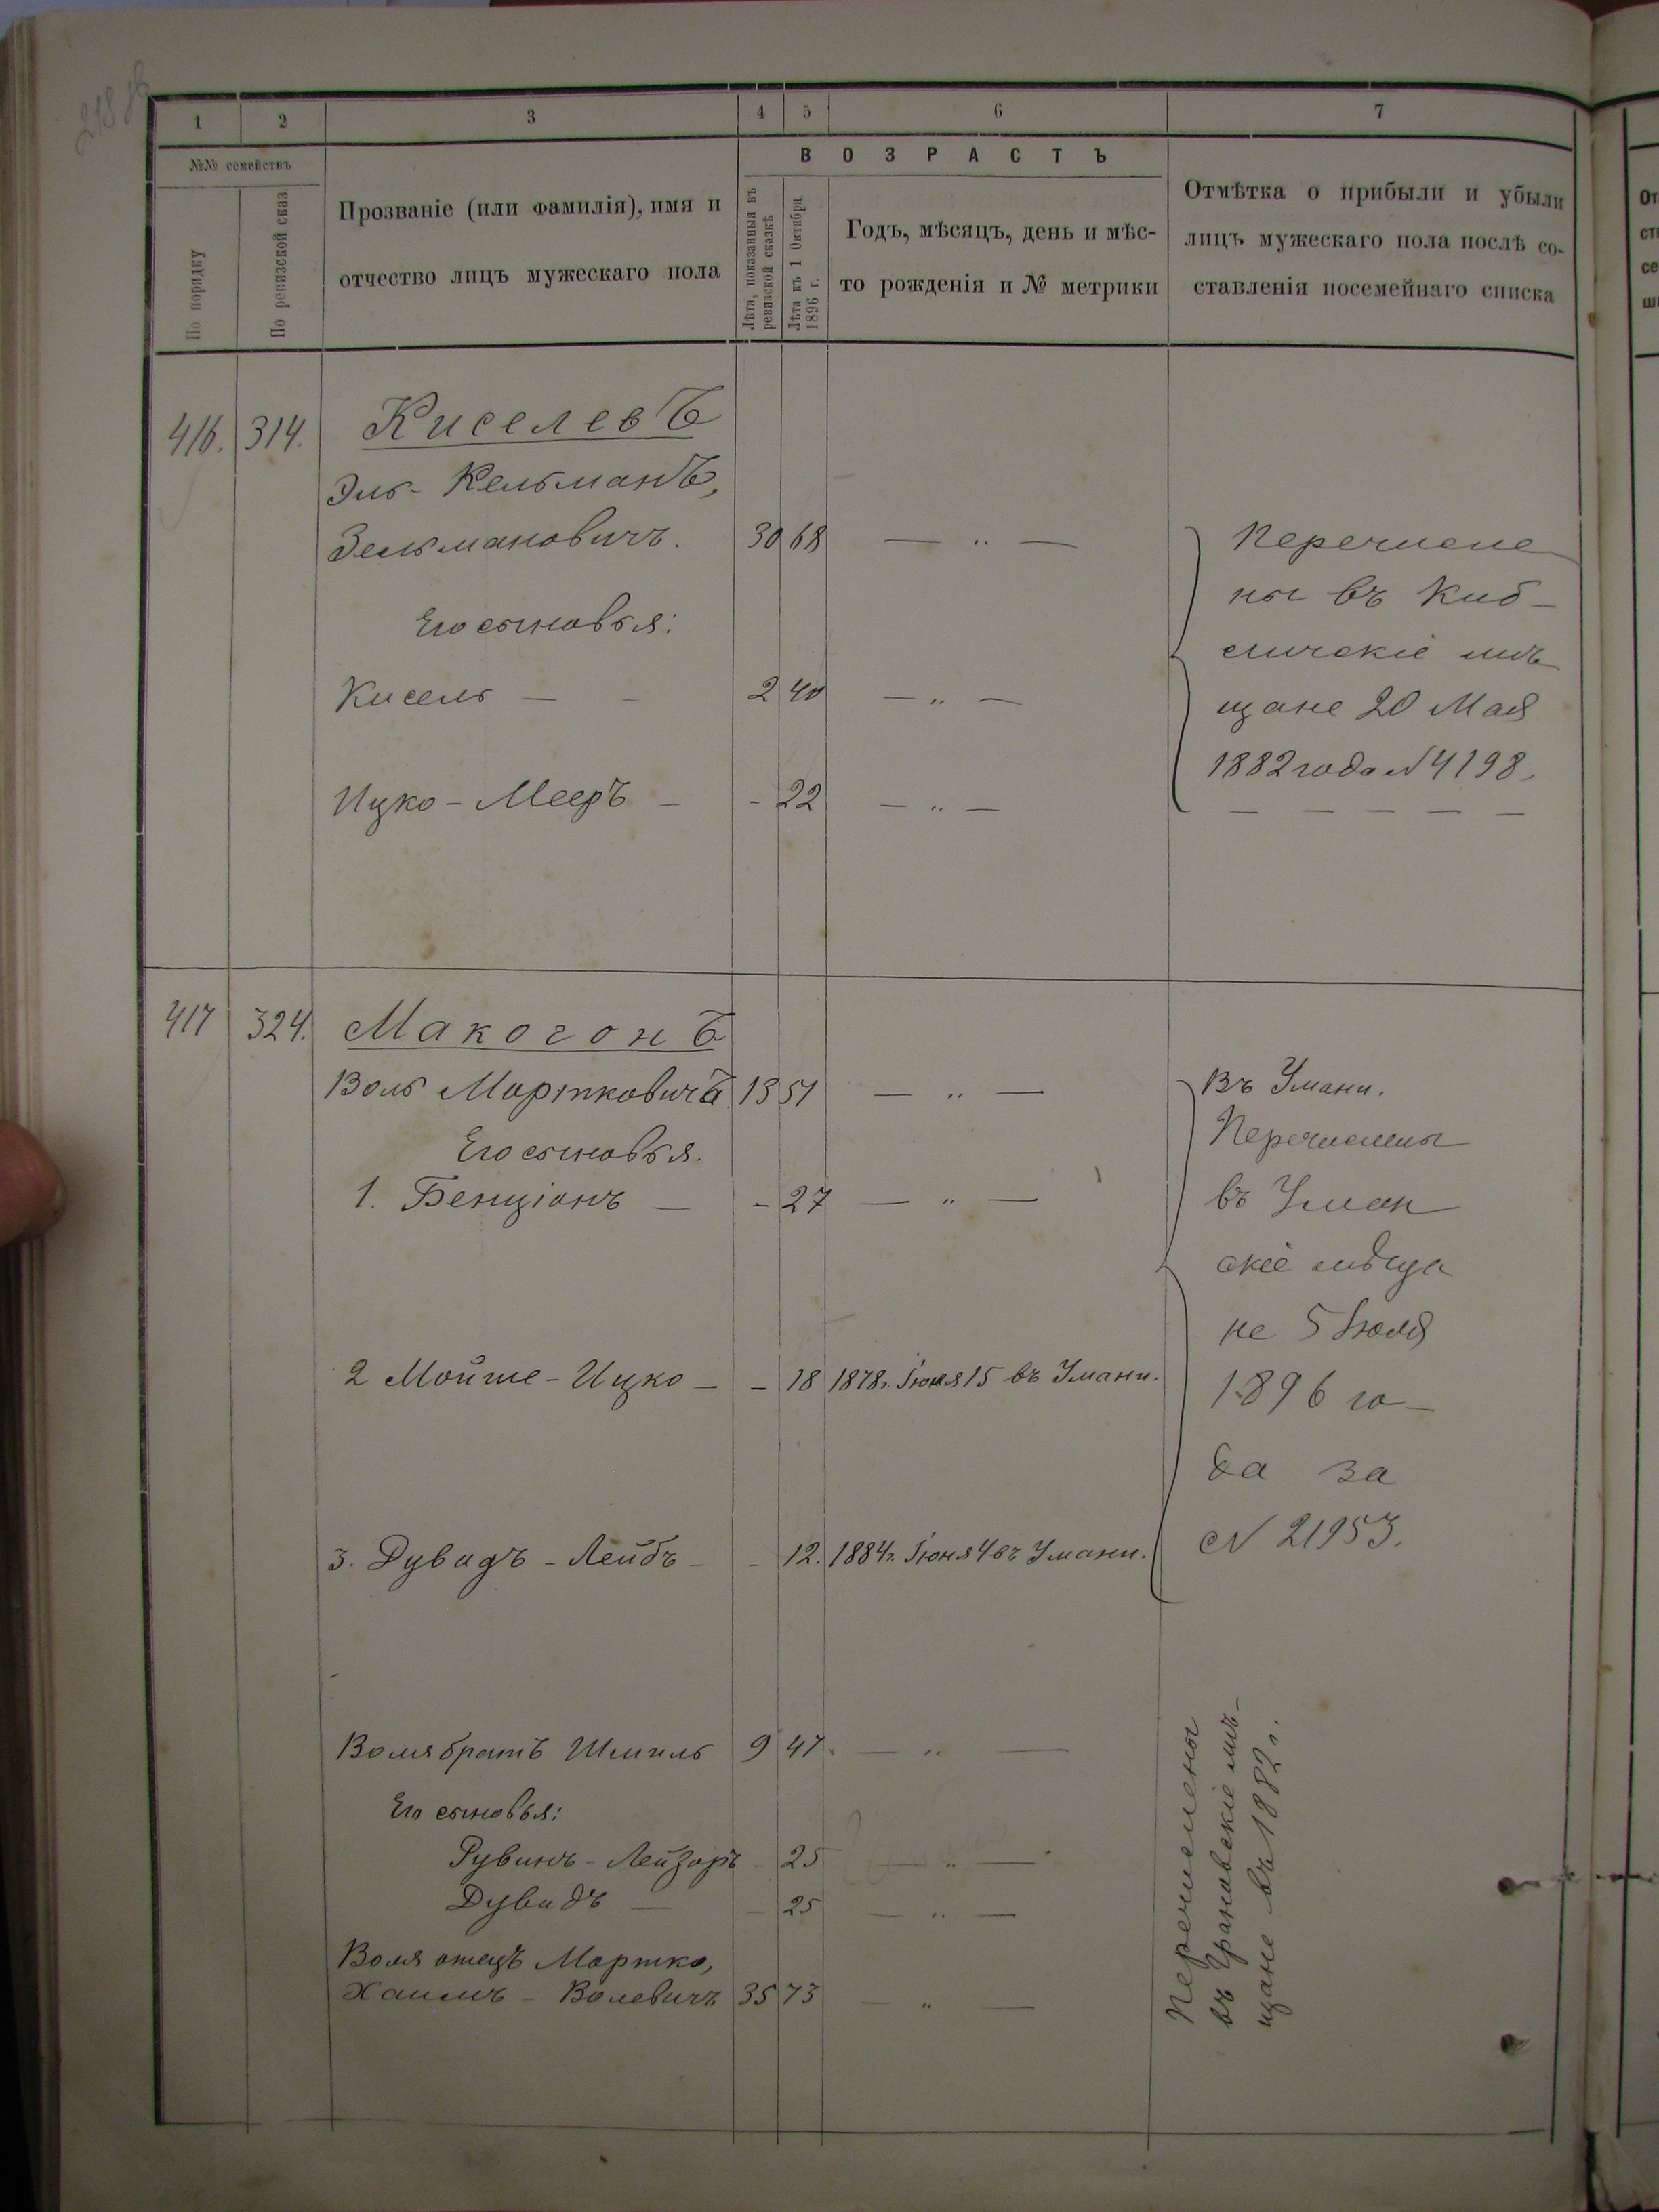 1 2 3 4 5 6 7
№№ семействъ
По порядку
По ревизской сказ.
Прозваніе (или фамилія), имя и
отчество лицъ мужескаго пола
ВОЗРАСТЪ
Лѣта, показанныя въ
ревизской сказкѣ
Лѣта къ 1 Октября
1896 г.
Годъ, мѣсяцъ, день и мѣс-
то рожденія и № метрики
Отмѣтка о прибыли и убыли
лицъ мужескаго пола послѣ со-
ставленія посемейнаго списка
416. 314. Киселевъ
Эль-Кельманъ,
Зельмановичъ. 30 68 — „ —
Его сыновья:
Кисель — — 2 40 — „ —
Ицко-Мееръ — - 22 — „ —
Перечисле
ны въ Киб-
личскіе мѣ
щане 20 Мая
1882 года № 4198.
— — — — —
417 324. Макогонъ
Воль Мортковичъ 13 51 — „ —
Его сыновья.
1. Бенціонъ — - 27 — „ —
2 Мойше-Ицко — - 18 1878 г. Іюня 15 въ Умани.
3. Дувидъ-Лейбъ - - 12. 1884 г. Іюня 4 въ Умани.
Въ Умани.
Перечислены
въ Уман
скіе мѣща
не 5 Іюля
1896 го-
да за
№ 21953.
Воля братъ Шмиль 9 47. — „ —
Его сыновья:
Рувинъ-Лейзоръ - 25 — „ —
Дувидъ — — 25 — „ —
Воля отецъ Мортко,
Хаимъ-Волевичъ 35 73 — „ —
Перечислены
въ Грановскіе мѣ-
щане въ 1882 г.